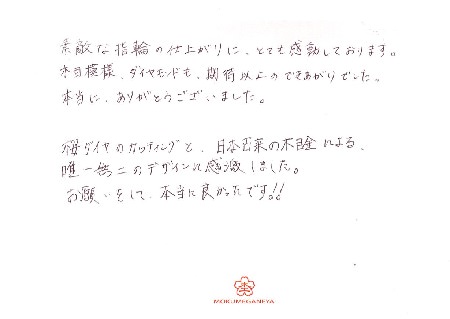 素敵な指輪の仕上がりに、とても感動しております。
木目模様、ダイヤモンドも、期待以上のできあがりでした。
本当に、ありがとうございました。
桜ダイヤのカッティングと、日本古来の木目金による、
唯一無二のデザインに感激しました。
お願いをして、本当に良かったです!!
MOKUMEGANEYA